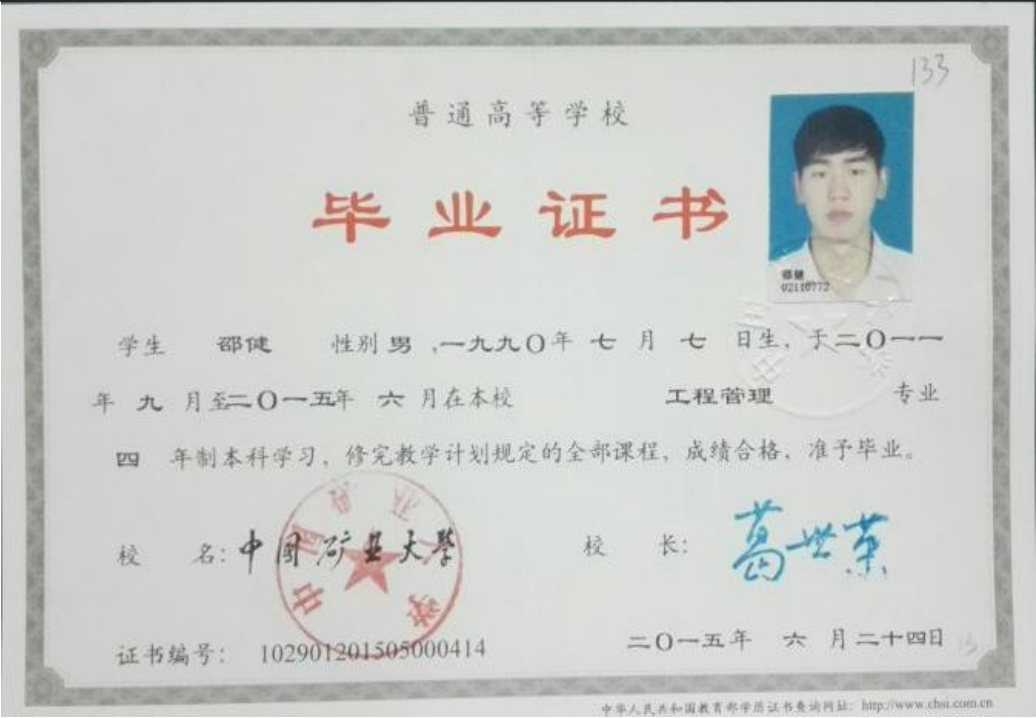 133
普通高等学校
毕业证书
邵健
02110772
学生 邵健 性别 男 ,一九九〇年 七 月 七 日生, 于二〇一一
年 九 月至二〇一五年 六 月在本校 工程管理 专业
四 年制本科学习, 修完教学计划规定的全部课程, 成绩合格, 准予毕业。
校 名: 中国矿业大学 校 长: 葛世荣
证书编号: 102901201505000414 二〇一五年 六 月二十四日
中华人民共和国教育部学历证书查询网址: http://www.chsi.com.cn